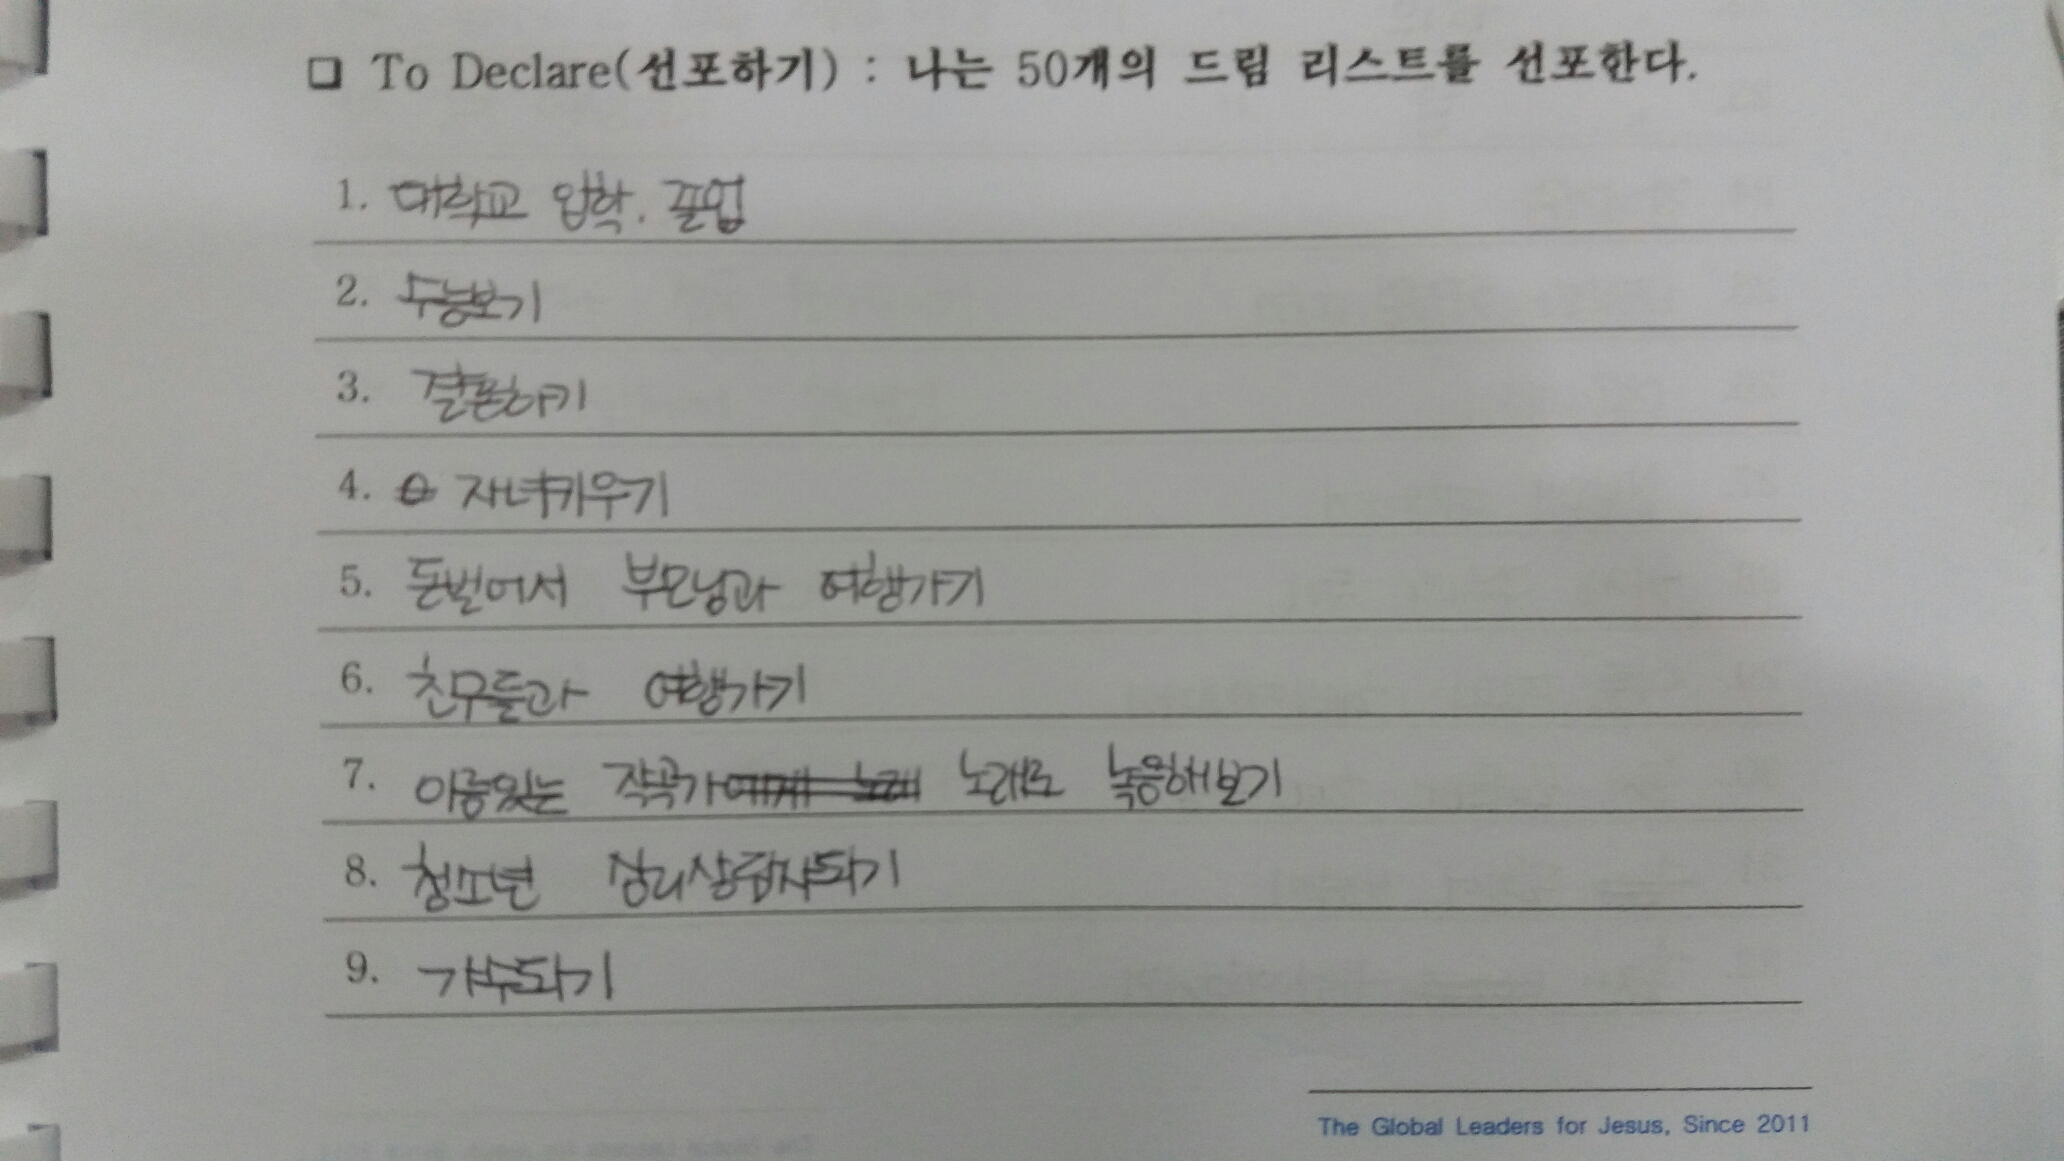 □ To Declare(선포하기) : 나는 50개의 드림 리스트를 선포한다.
1. 대학교 입학. 졸업
2. 수능보기
3. 결혼하기
4. 자녀키우기
5. 돈벌어서 부모님과 여행가기
6. 친구들과 여행가기
7. 이름있는 작곡가에게 노래 노래로 녹음해보기
8. 청소년 심리상담자되기
9. 가수되기
The Global Leaders for Jesus, Since 2011